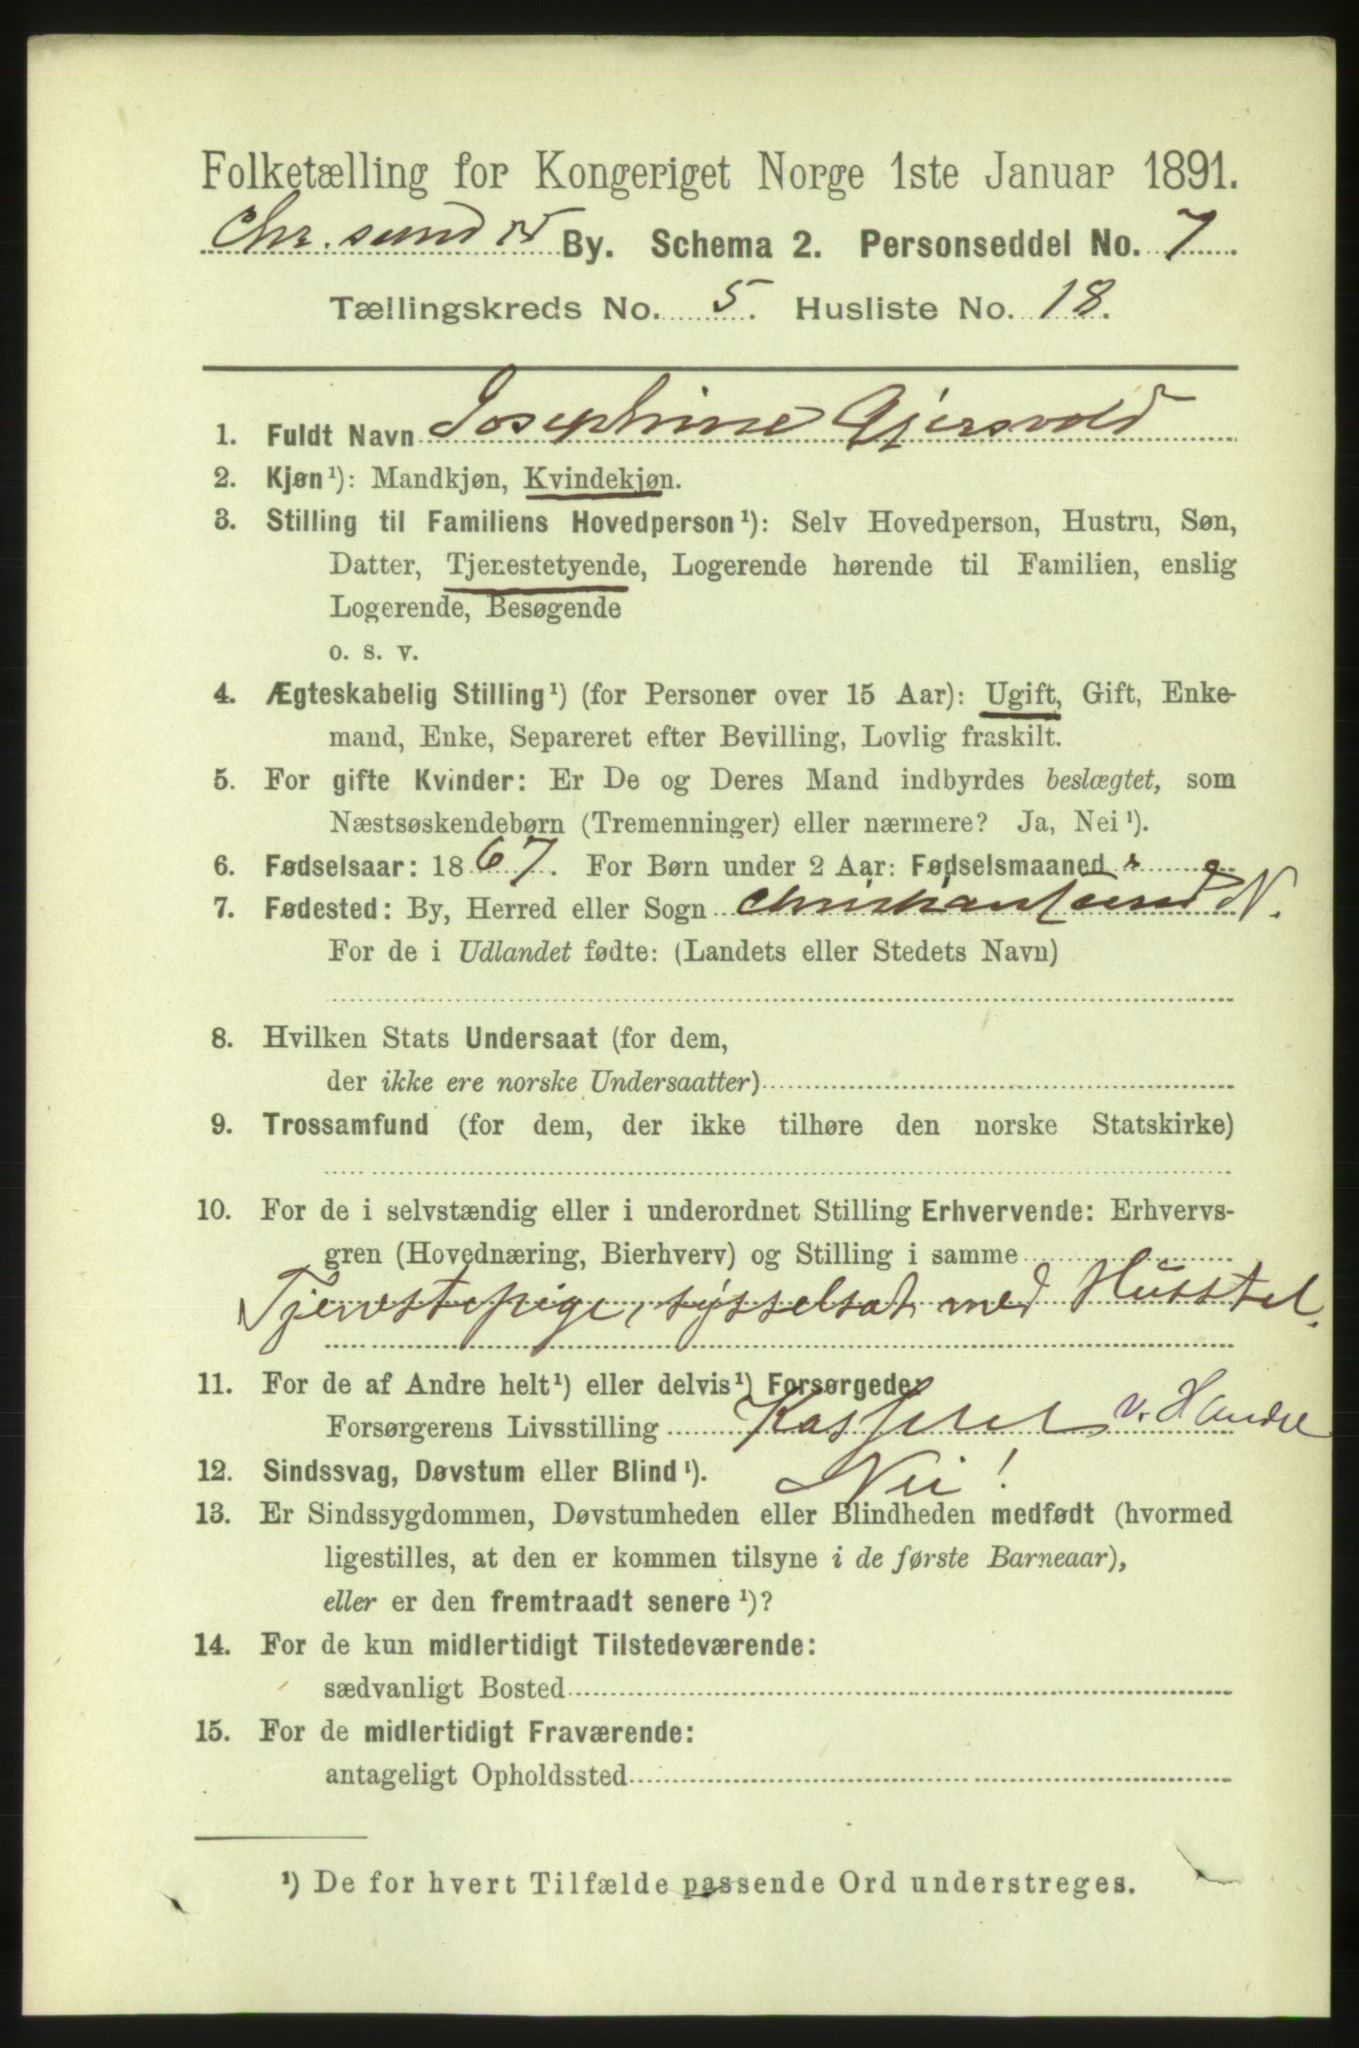 Folketælling for Kongeriget Norge 1ste Januar 1891.
Chr.sund N By. Schema 2. Personseddel No. 7
Tællingskreds No. 5. Husliste No. 18.
1. Fuldt Navn Josephine Gjersvold
2. Kjøn¹): Mandkjøn, Kvindekjøn.
3. Stilling til Familiens Hovedperson¹): Selv Hovedperson, Hustru, Søn,
Datter, Tjenestetyende, Logerende hørende til Familien, enslig
Logerende, Besøgende
o. s. v.
4. Ægteskabelig Stilling¹) (for Personer over 15 Aar): Ugift, Gift, Enke-
mand, Enke, Separeret efter Bevilling, Lovlig fraskilt.
5. For gifte Kvinder: Er De og Deres Mand indbyrdes beslægtet, som
Næstsøskendebørn (Tremenninger) eller nærmere? Ja, Nei¹).
6. Fødselsaar: 1867. For Børn under 2 Aar: Fødselsmaaned
7. Fødested: By, Herred eller Sogn Christiansund N.
For de i Udlandet fødte: (Landets eller Stedets Navn)
8. Hvilken Stats Undersaat (for dem,
der ikke ere norske Undersaatter)
9. Trossamfund (for dem, der ikke tilhøre den norske Statskirke)
10. For de i selvstændig eller i underordnet Stilling Erhvervende: Erhvervs-
gren (Hovednæring, Bierhverv) og Stilling i samme
Tjenestepige, sysselsat med Husstel.
11. For de af Andre helt¹) eller delvis¹) Forsørgede:
Forsørgerens Livsstilling Kasserer v. Handel
12. Sindssvag, Døvstum eller Blind¹). Nei!
13. Er Sindssygdommen, Døvstumheden eller Blindheden medfødt (hvormed
ligestilles, at den er kommen tilsyne i de første Barneaar),
eller er den fremtraadt senere¹)?
14. For de kun midlertidigt Tilstedeværende:
sædvanligt Bosted
15. For de midlertidigt Fraværende:
antageligt Opholdssted
¹) De for hvert Tilfælde passende Ord understreges.